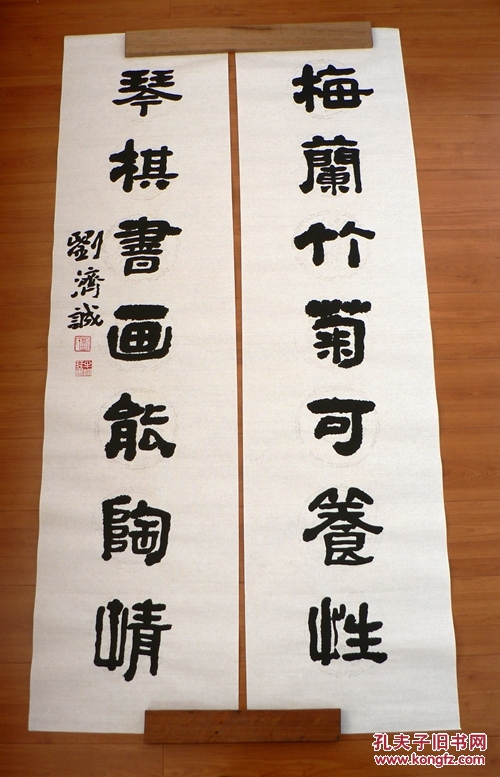 梅蘭竹菊可養性
琴棋書画能陶情
劉濟誠
孔夫子旧书网
www.kongfz.com